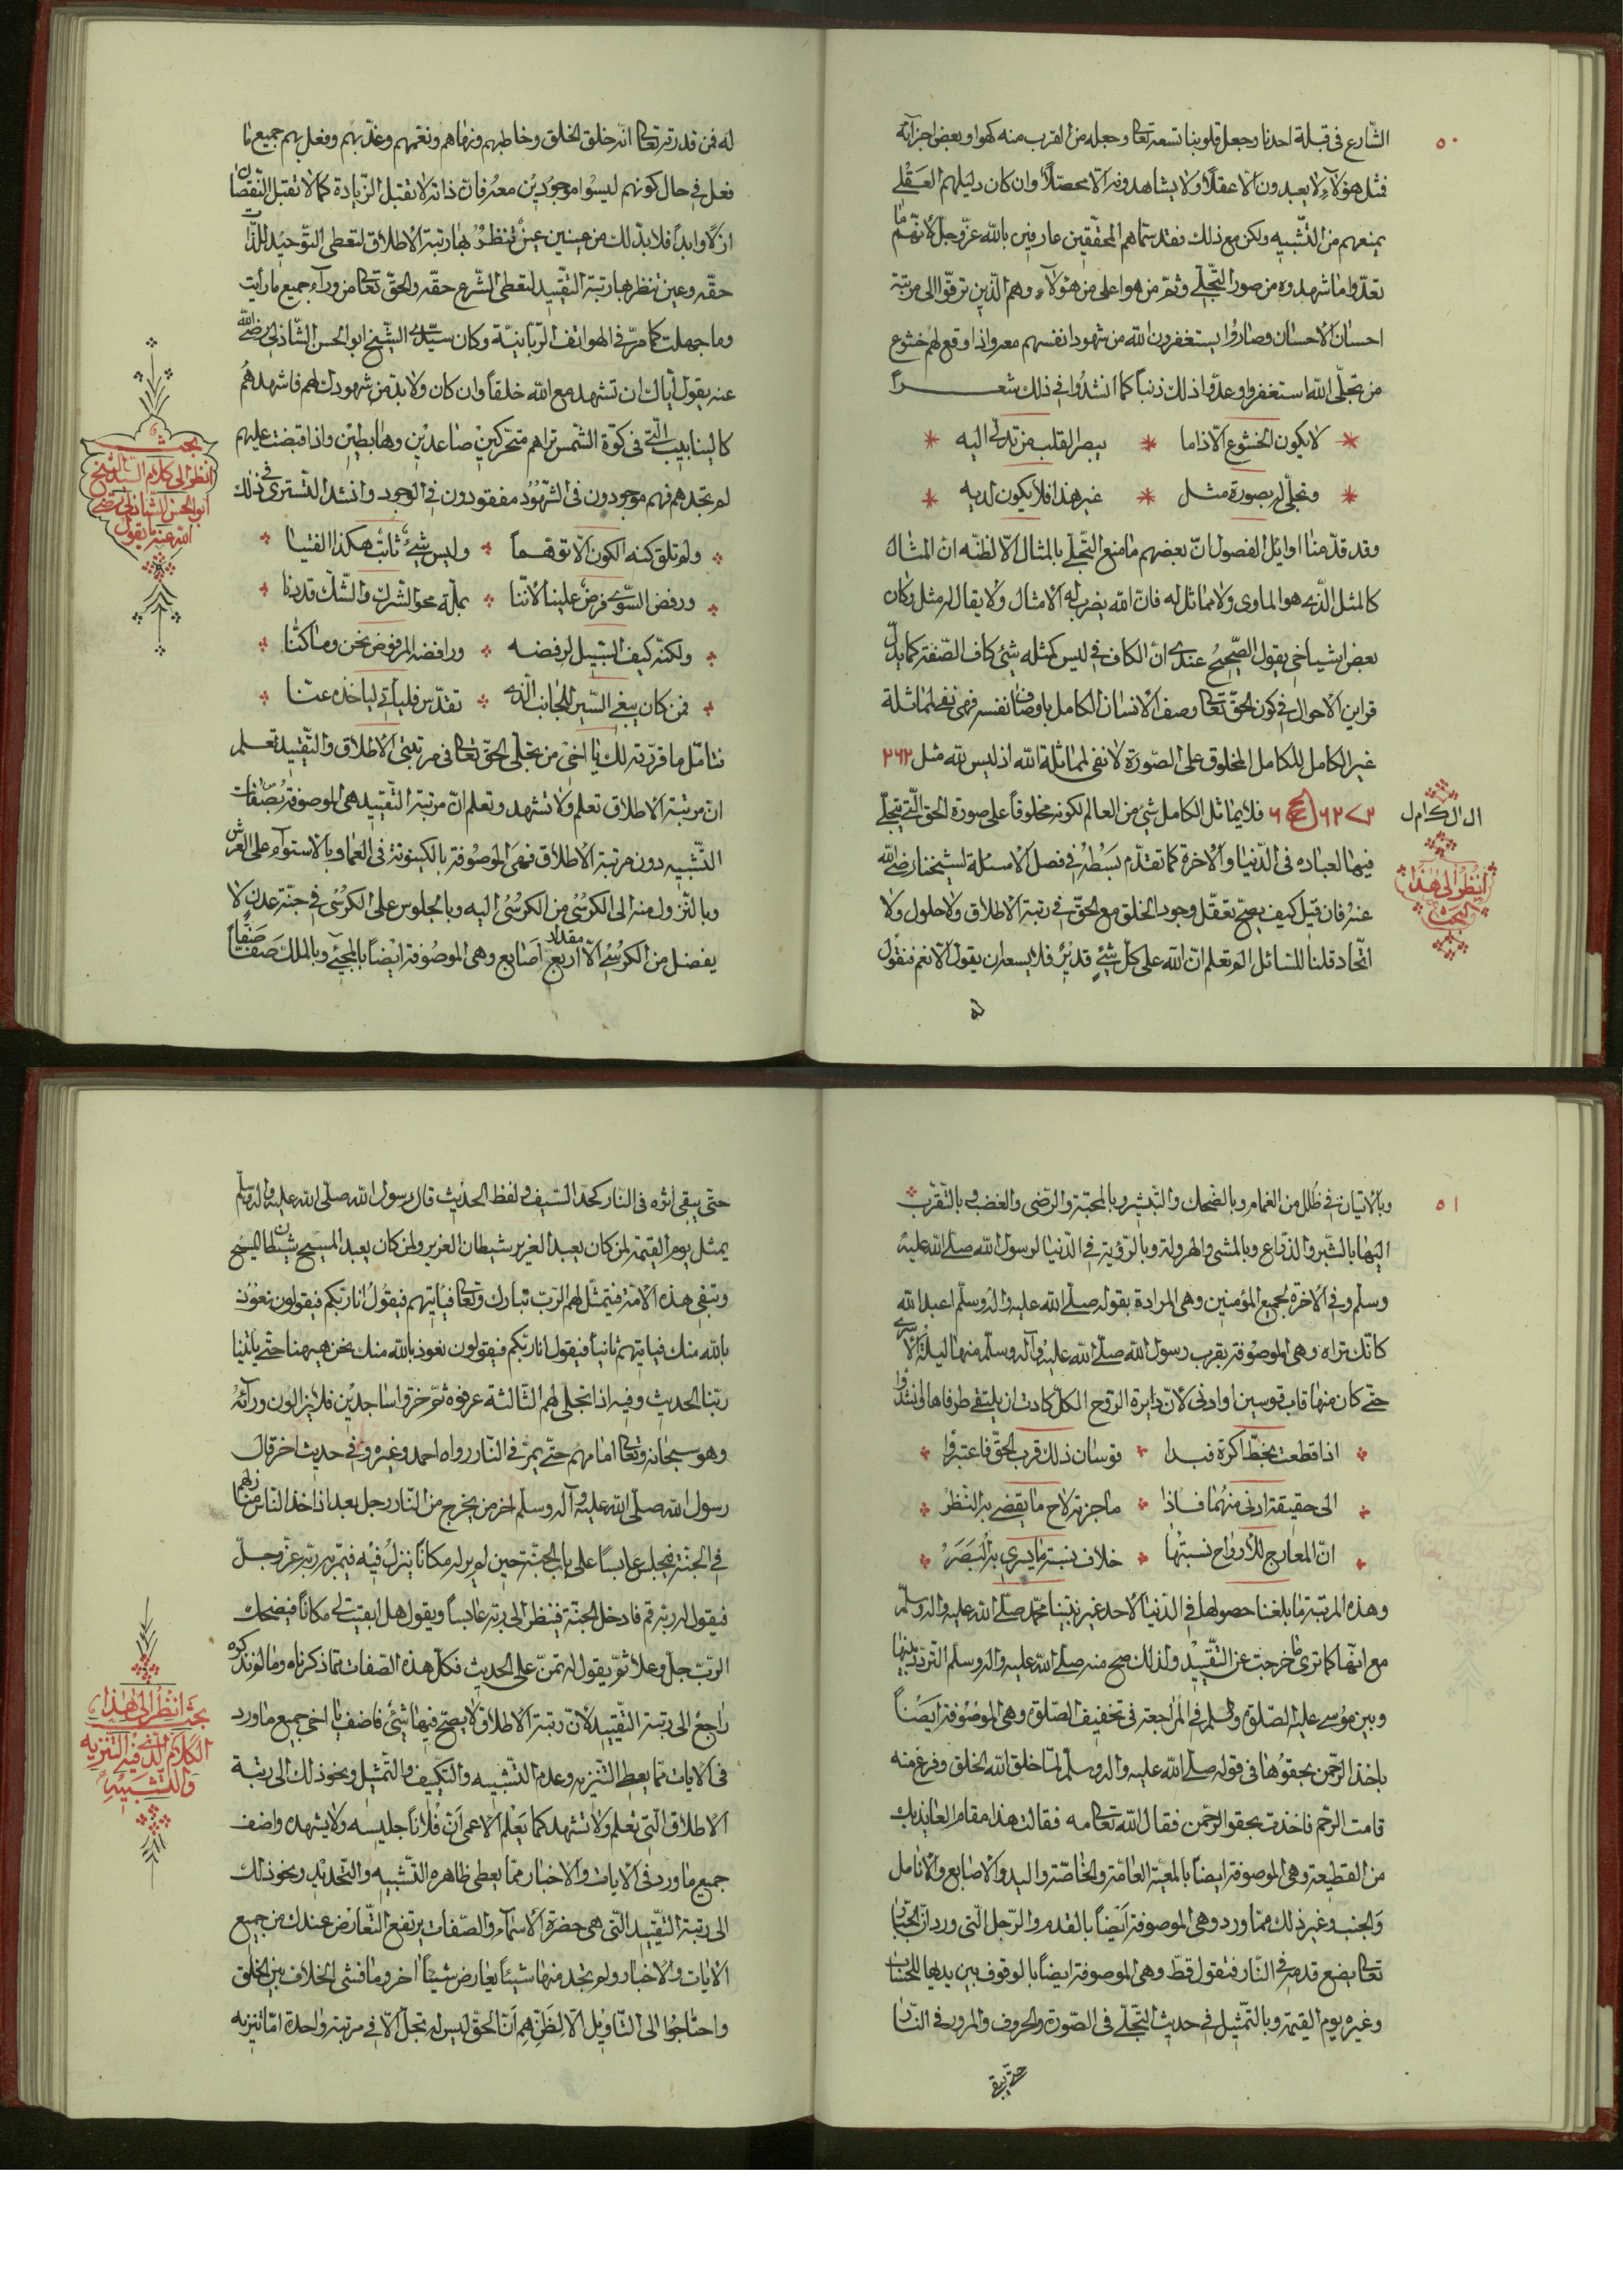 ٥٠
الشارع في قبلة احدنا وجعل قلوبنا تسعه تعالى وجعله من القرب منه كهو او بعض اجزائه
فمثل هؤلاء لا يعبدون الا عقلاً ولا يشاهدونه الا محصلاً وان كان دليلهم العقلي
يمنعهم من التشبيه ولكن مع ذلك فقد سماهم المحققين عارفين بالله عز وجل لانهم ما
تعدوا ما شهدوه من صور التجلي وثم من هو اعلى من هؤلاء وهم الذين ترقوا الى مرتبة
احسان الاحسان وصاروا يستغفرون الله من شهود انفسهم معه واذا وقع لهم خشوع
من تجلي الله استغفروا وعدوا ذلك ذنباً كما انشدوا في ذلك شعراً
لا يكون الخشوع الا اذا ما * يبصر القلب من تدلى اليه
وتجلى له بصورة مثل * غير هذا فلا يكون لديه
وقد قدمنا اوايل الفصول ان بعضهم ما منع التجلي بالمثال الا لظنه ان المثال
كالمثل الذي هو المساوى ولا مماثل له فان الله يضرب له الامثال ولا يقال له مثل وكان
بعض اشياخي يقول الصحيح عندي ان الكاف في ليس كمثله شئ كاف الصفة كما يدل
قراين الاحوال في كون الحق تعالى وصف الانسان الكامل باوصاف نفسه فهي نفي لمماثلة
غير الكامل للكامل المخلوق على الصورة لا نفي لمماثلة الله اذ ليس لله مثل
فلا يماثل الكامل شئ من العالم لكونه مخلوقاً على صورة الحق التي يتجلى
فيها لعباده في الدنيا والاخرة كما تقدم بسطه في فصل الاسئلة لشيخنا رضي الله
عنه فان قيل كيف يصح تعقل وجود الخلق مع الحق في رتبة الاطلاق ولا حلول ولا
اتحاد قلنا للسائل الم تعلم ان الله على كل شئ قدير فلا يسعه ان يقول الا نعم فنقول
له
انظر الى هذا
البحث
له فمن قدرته تعالى انه خلق الخلق وخاطبهم ونهاهم ونعمهم وعذبهم وفعل بهم جميع ما
فعل في حال كونهم ليسوا موجودين معه فان ذاته لا تقبل الزيادة كما لا تقبل النقصان
ازلاً وابداً فلا بد لك من عينين عين تنظر بها رتبة الاطلاق لتعطي التوحيد للذات
حقه وعين تنظر بها رتبة التقييد لتعطي الشرع حقه والحق تعالى من وراء جميع ما رأيت
وما جهلت كما مر في الهواتف الربانية وكان سيدي الشيخ ابو الحسن الشاذلي رضي الله
عنه يقول اياك ان تشهد مع الله خلقاً وان كان ولا بد من شهودك لهم فاشهدهم
كالينابيب التي في كوة الشمس تراهم متحركين صاعدين وهابطين واذا قبضت عليهم
لم تجدهم فهم موجودون في الشهود مفقودون في الوجود وانشد التستري في ذلك
ولم تلق كنه الكون الا توهماً * وليس شئ ثابت هكذا الفينا
ورفض السوى فرض علينا لاننا * بملة محو الشرك والشك قد دنا
ولكنه كيف السبيل لرفضه * ورافضه المرفوض نحن وما كنا
فمن كان يبغي السير للجانب الذي * تقدس فليأتي لياخذه عنا
فتامل ما قررته لك يا اخي من تجلي الحق تعالى في مرتبتي الاطلاق والتقييد تعلم
ان مرتبة الاطلاق تعلم ولا تشهد وتعلم ان مرتبة التقييد هي الموصوفة بصفات
التشبيه دون مرتبة الاطلاق فهي الموصوفة بالكينونة في العما وبالاستواء على العرش
وبالنزول منه الى الكرسي من الكرسي اليه وبالجلوس على الكرسي في جنة عدن لا
يفضل من الكرسي الا مقدار اربع اصابع وهي الموصوفة ايضاً بالمجيئ وبالملك صفاً صفاً
بحث
انظر الى كلام السيد الشيخ
ابو الحسن الشاذلي رضي
الله عنه ما يقول
٥١
وبالاتيان في ظلل من الغمام وبالضحك والتبشبش وبالمحبة والرضى والغضب وبالتقرب
اليها بالشبر والذراع وبالمشي والهرولة وبالرؤية في الدنيا لرسول الله صلى الله عليه
وسلم وفي الاخرة لجميع المؤمنين وهي المرادة بقوله صلى الله عليه واله وسلم اعبد الله
كانك تراه وهي الموصوفة بقرب رسول الله صلى الله عليه وآله وسلم منها ليلة الاسرى
حتى كان منها قاب قوسين او ادنى لان دايرة الروح الكل كادت ان يلتقي طرفاها وانشدوا
اذا قطعت بخط اكرة فبدا * قوسان ذلك قرب الحق فاعتبروا
الى حقيقة ادنى منهما فاذا * ما جزته لاح ما يقضي به النظر
ان المعارج للارواح نسبتها * خلاف نسبة ما يسري به البصر
وهذه المرتبة ما بلغنا حصولها في الدنيا لاحد غير نبينا محمد صلى الله عليه واله وسلم
مع انها كما ترى ما خرجت عن التقييد ولذلك صح منه صلى الله عليه واله وسلم التردد بينها
وبين موسى عليه الصلوة والسلم في المراجعة في تخفيف الصلوة وهي الموصوفة ايضاً
باخذ الرحمن بحقوها في قوله صلى الله عليه واله وسلم لما خلق الله الخلق وفرغ منه
قامت الرحم فاخذت بحقو الرحمن فقال الله تعالى مه فقالت هذا مقام العايذ بك
من القطيعة وهي الموصوفة ايضاً بالمعية العامة والخاصة واليد والاصابع والانامل
والجنب وغير ذلك مما ورد وهي الموصوفة ايضاً بالقدم والرجل التي ورد ان الجبار
تعالى يضع قدمه في النار فتقول قط وهي الموصوفة ايضاً بالوقوف بين يديها للحساب
وغيره يوم القيمة وبالتمثيل في حديث التجلي في الصورة والحروف والمرور في النار
حتى يبقى
حتى يبقى اثره في النار كحد السيف ولفظ الحديث قال رسول الله صلى الله عليه واله وسلم
يمثل يوم القيمة لمن كان يعبد العزير شيطان العزير ولمن كان يعبد المسيح شيطان المسيح
وتبقى هذه الامة فيتمثل لهم الرب تبارك وتعالى فيأتيهم فيقول انا ربكم فيقولون نعوذ
بالله منك فياتيهم ثانياً فيقول انا ربكم فيقولون نعوذ بالله منك نحن هيهنا حتى يأتينا
ربنا الحديث وفيه اذا تجلى لهم الثالثة عرفوه ثم خروا ساجدين فلا يزالون ورآئه
وهو سبحانه وتعالى امامهم حتى يمر في النار رواه احمد وغيره وفي حديث اخر قال
رسول الله صلى الله عليه وآله وسلم اخر من يخرج من النار رجل بعد اذا اخذ الناس منازلهم
في الجنة فيجلس عابساً على باب الجنة حين لم ير له مكاناً ينزل فيه فيمر به ربه عز وجل
فيقول له ربه قم فادخل الجنة فينظر الى ربه عابساً ويقول هل ابقيت لي مكاناً فيضحك
الرب جل وعلا ثم يقول له تمن علي الحديث فكل هذه الصفات مما ذكرناه وما لم نذكره
راجع الى رتبة التقييد لان رتبة الاطلاق لا يصح فيها شئ فاضف يا اخي جميع ما ورد
في الايات مما يعطي التنزيه وعدم التشبيه والتكييف والتمثيل ونحو ذلك الى رتبة
الاطلاق التي تعلم ولا تشهد كما يعلم الاعمى ان فلاناً جليسه ولا يشهده واضف
جميع ما ورد في الايات والاخبار مما يعطي ظاهره التشبيه والتحديد ونحو ذلك
الى رتبة التقييد التي هي حضرة الاسماء والصفات يرتفع التعارض عندك من جميع
الايات والاخبار ولم تجد منها شيئاً يعارض شيئاً اخر وما فشى الخلاف بين الخلق
واحتاجوا الى التاويل الا لظنهم ان الحق ليس له تجل الا في مرتبة واحدة اما تنزيه
بحث انظر الى هذا
الكلام الذي فيه التنزيه
والتشبيه